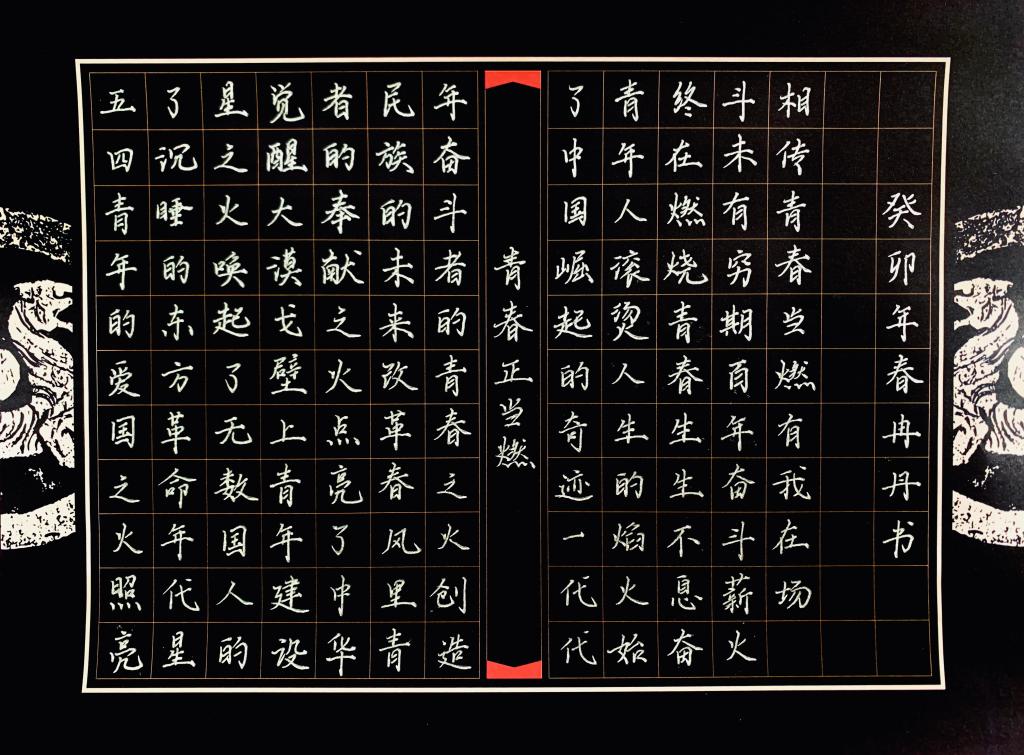 五四青年的爱国之火照亮
了沉睡的东方革命年代星
星之火唤起了无数国人的
觉醒大漠戈壁上青年建设
者的奉献之火点亮了中华
民族的未来改革春风里青
年奋斗者的青春之火创造
青春正当燃
了中国崛起的奇迹一代代
青年人滚烫人生的焰火始
终在燃烧青春生生不息奋
斗未有穷期百年奋斗薪火
相传青春当燃有我在场
癸卯年春冉丹书